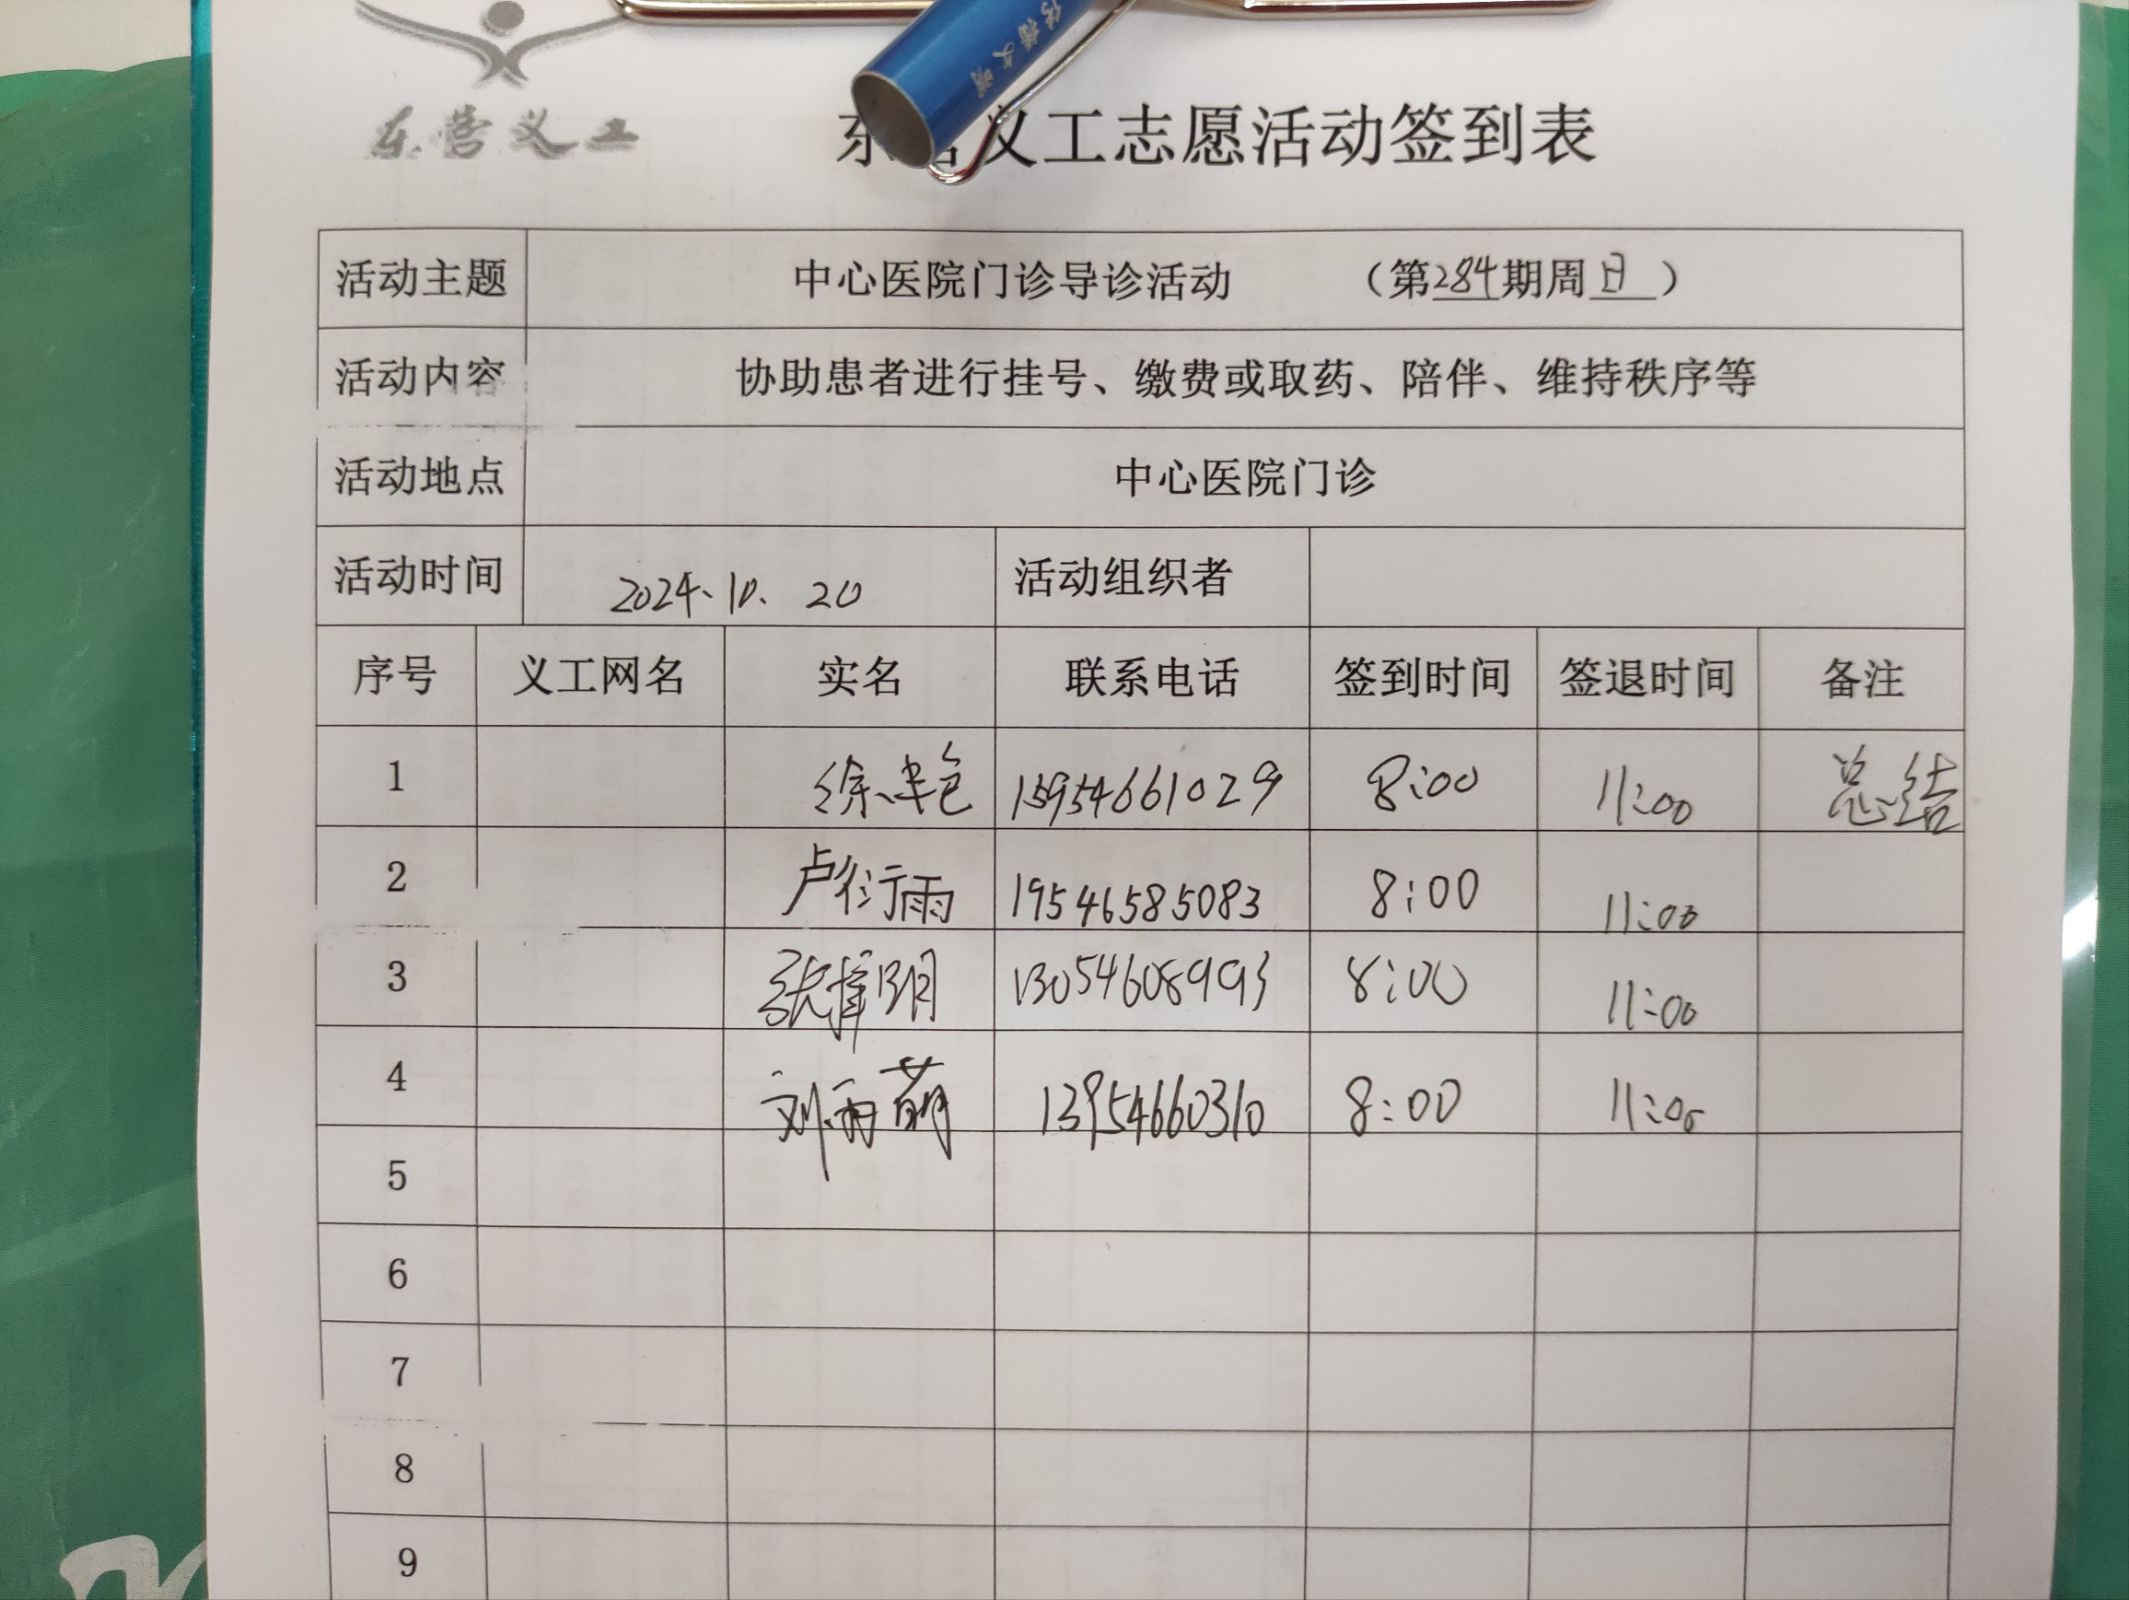 传播文明
东营义工
东营义工志愿活动签到表
活动主题 中心医院门诊导诊活动 （第284期周日）
活动内容 协助患者进行挂号、缴费或取药、陪伴、维持秩序等
活动地点 中心医院门诊
活动时间 2024.10.20 活动组织者
序号 义工网名 实名 联系电话 签到时间 签退时间 备注
1 徐艳 15954661029 8:00 11:00 总结
2 卢衍雨 19546585083 8:00 11:00
3 张撑明 13054608993 8:00 11:00
4 刘雨萌 13954660310 8:00 11:00
5
6
7
8
9